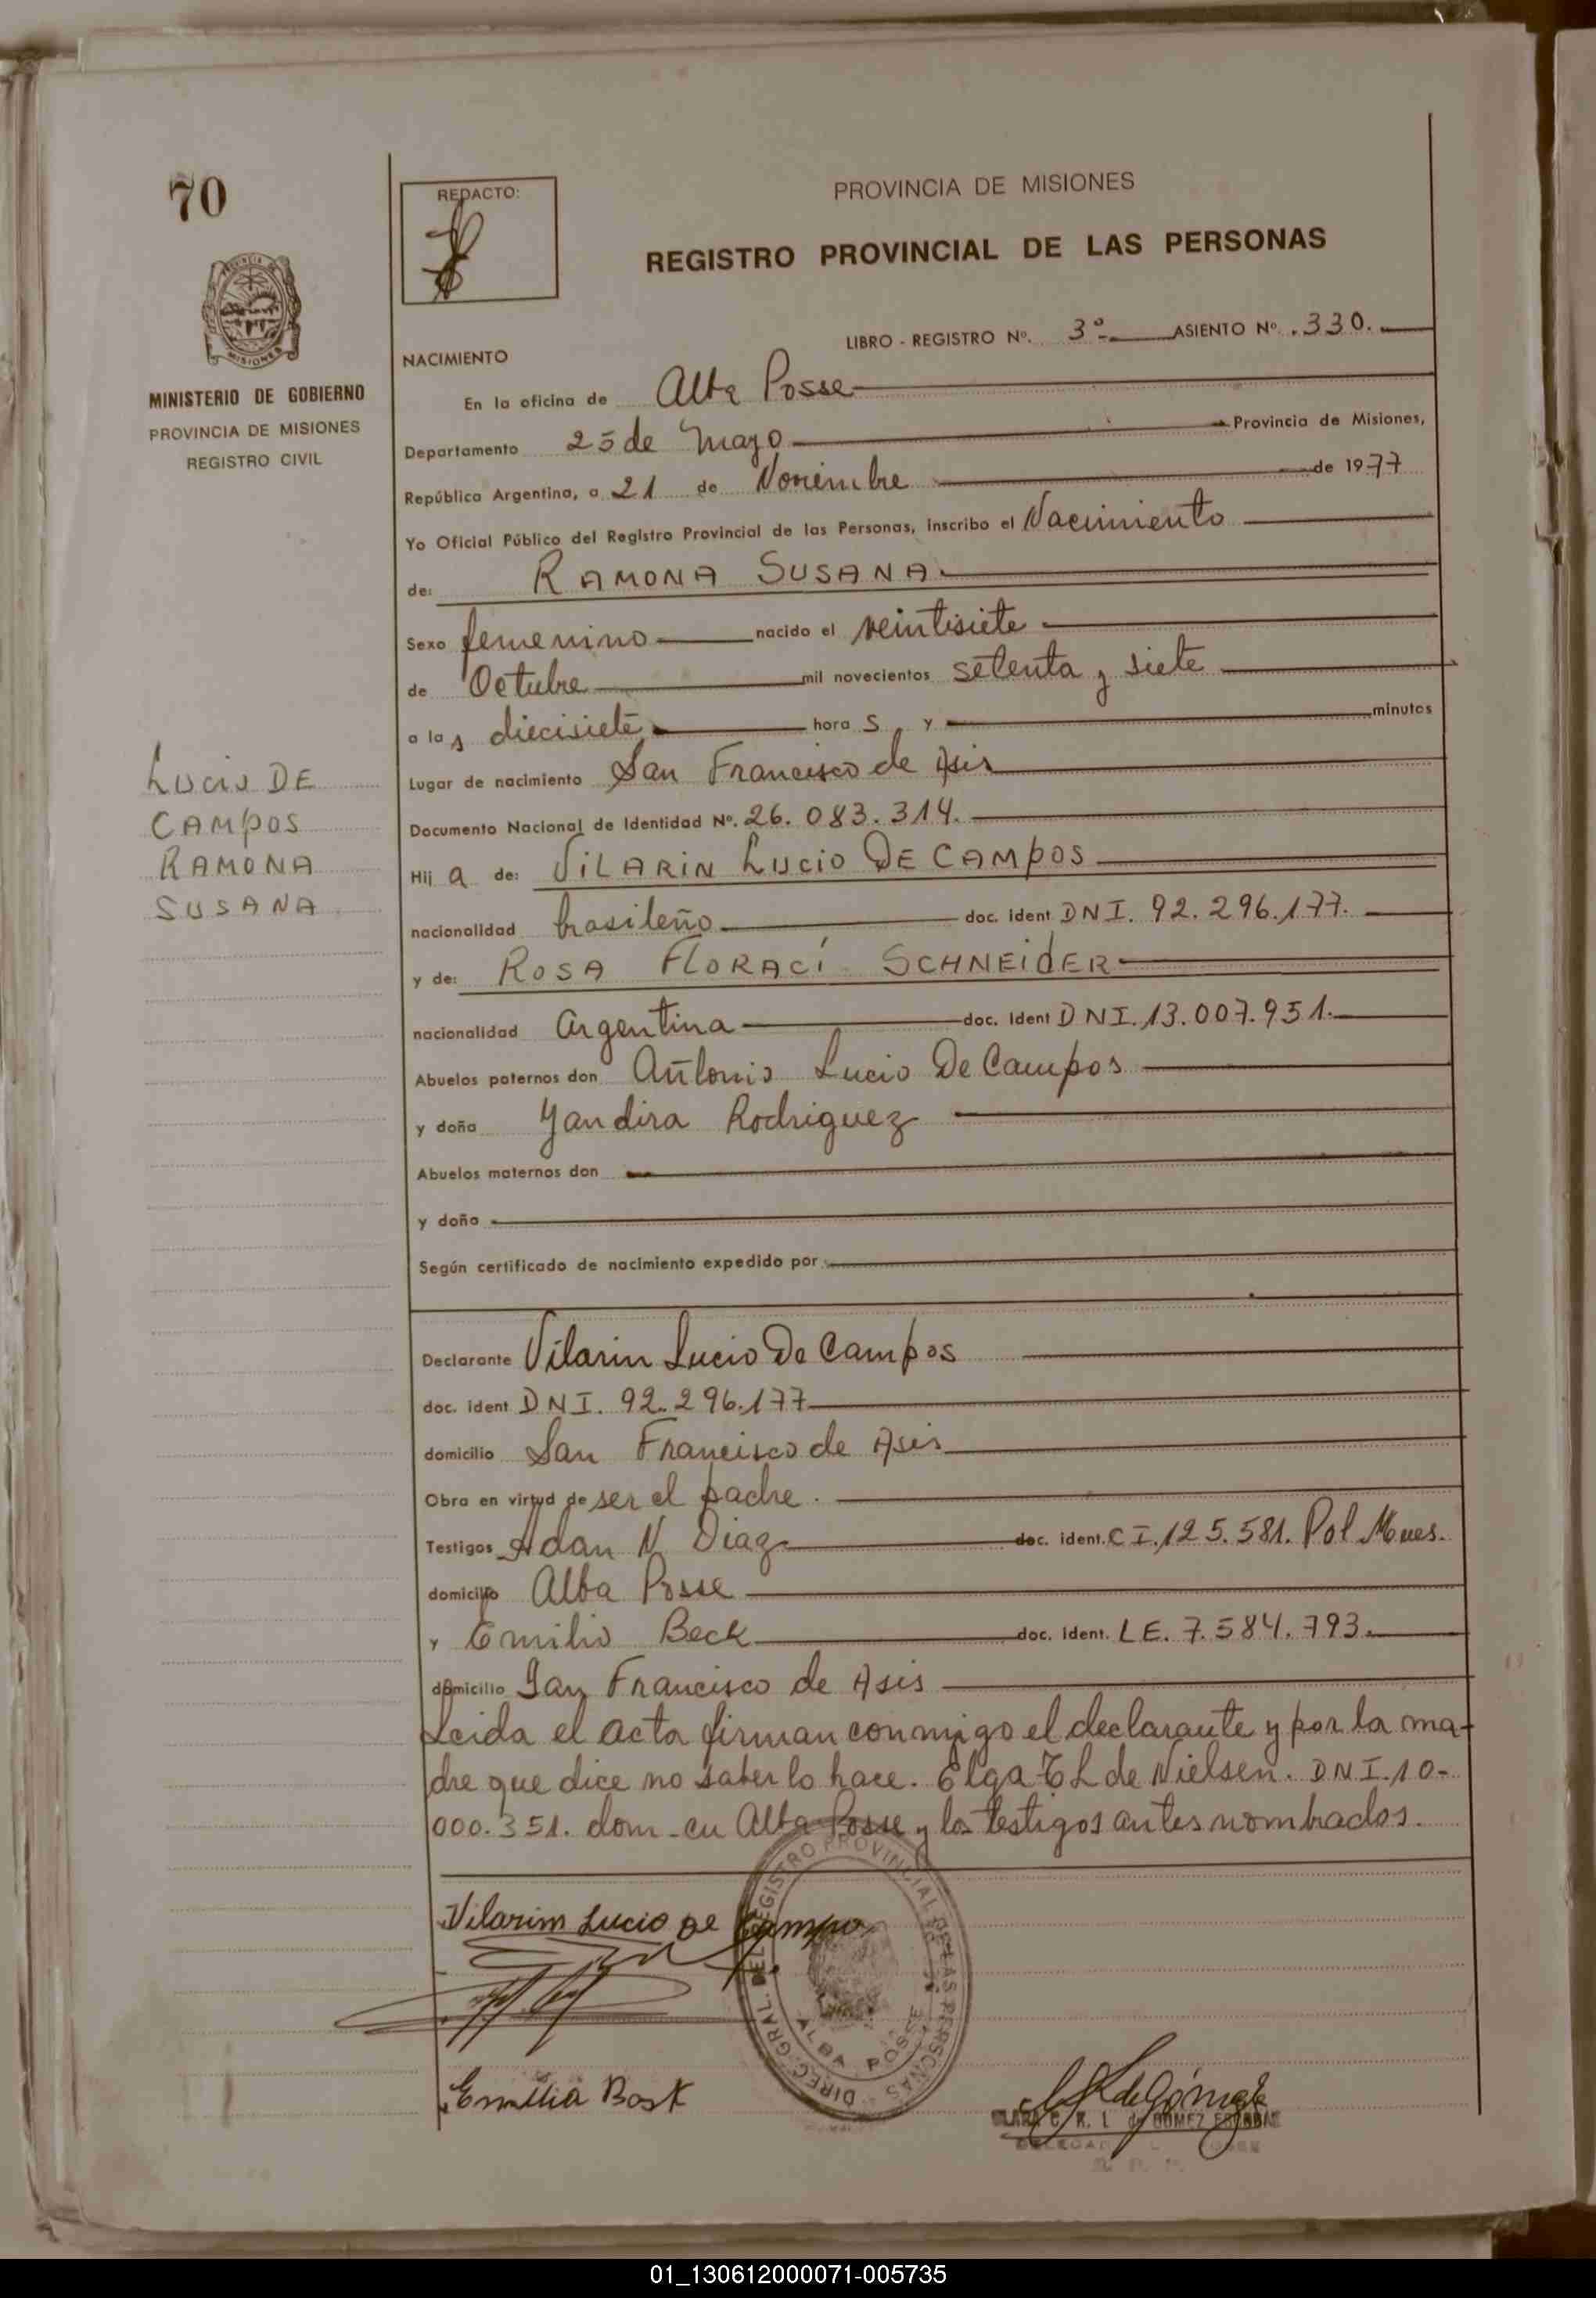 70
REDACTO:
PROVINCIA DE MISIONES
REGISTRO PROVINCIAL DE LAS PERSONAS
MISIONES
MINISTERIO DE GOBIERNO
PROVINCIA DE MISIONES
REGISTRO CIVIL
LIBRO - REGISTRO Nº. 3º ASIENTO Nº. 330.
NACIMIENTO
En la oficina de Alba Posse
Departamento 25 de Mayo Provincia de Misiones,
República Argentina, a 21 de Noviembre de 1977
Yo Oficial Público del Registro Provincial de las Personas, inscribo el Nacimiento
de: RAMONA SUSANA
Sexo femenino nacido el veintisiete
de Octubre mil novecientos setenta y siete
a las diecisiete horas y minutos
Lugar de nacimiento San Francisco de Asis
Documento Nacional de Identidad Nº. 26.083.314.
Hija de: VILARIN LUCIO DE CAMPOS
nacionalidad brasileño doc. ident DNI. 92.296.177.
y de: ROSA FLORACÍ SCHNEIDER
nacionalidad Argentina doc. ident DNI. 13.007.951.
Abuelos paternos don Antonio Lucio De Campos
y doña Yandira Rodriguez
Abuelos maternos don
y doña
Según certificado de nacimiento expedido por
LUCIO DE
CAMPOS
RAMONA
SUSANA
Declarante Vilarin Lucio De Campos
doc. ident DNI. 92.296.177
domicilio San Francisco de Asis
Obra en virtud de ser el padre.
Testigos Adan N Diaz doc. ident. CI. 125.581. Pol Mnes.
domicilio Alba Posse
y Emilio Beck doc. ident. LE. 7.584.793.
domicilio San Francisco de Asis
Leida el acta firman conmigo el declarante y por la ma-
dre que dice no saber lo hace. Elga L de Nielsen. DNI. 10-
000.351. dom. en Alba Posse y los testigos antes nombrados.
Vilarim Lucio De Campo
DIREC. GRAL. DEL REGISTRO PROVINCIAL DE LAS PERSONAS
ALBA POSSE
Emilia Bosk
CLARA C. R. L. de GOMEZ ESCOBAR
01_130612000071-005735